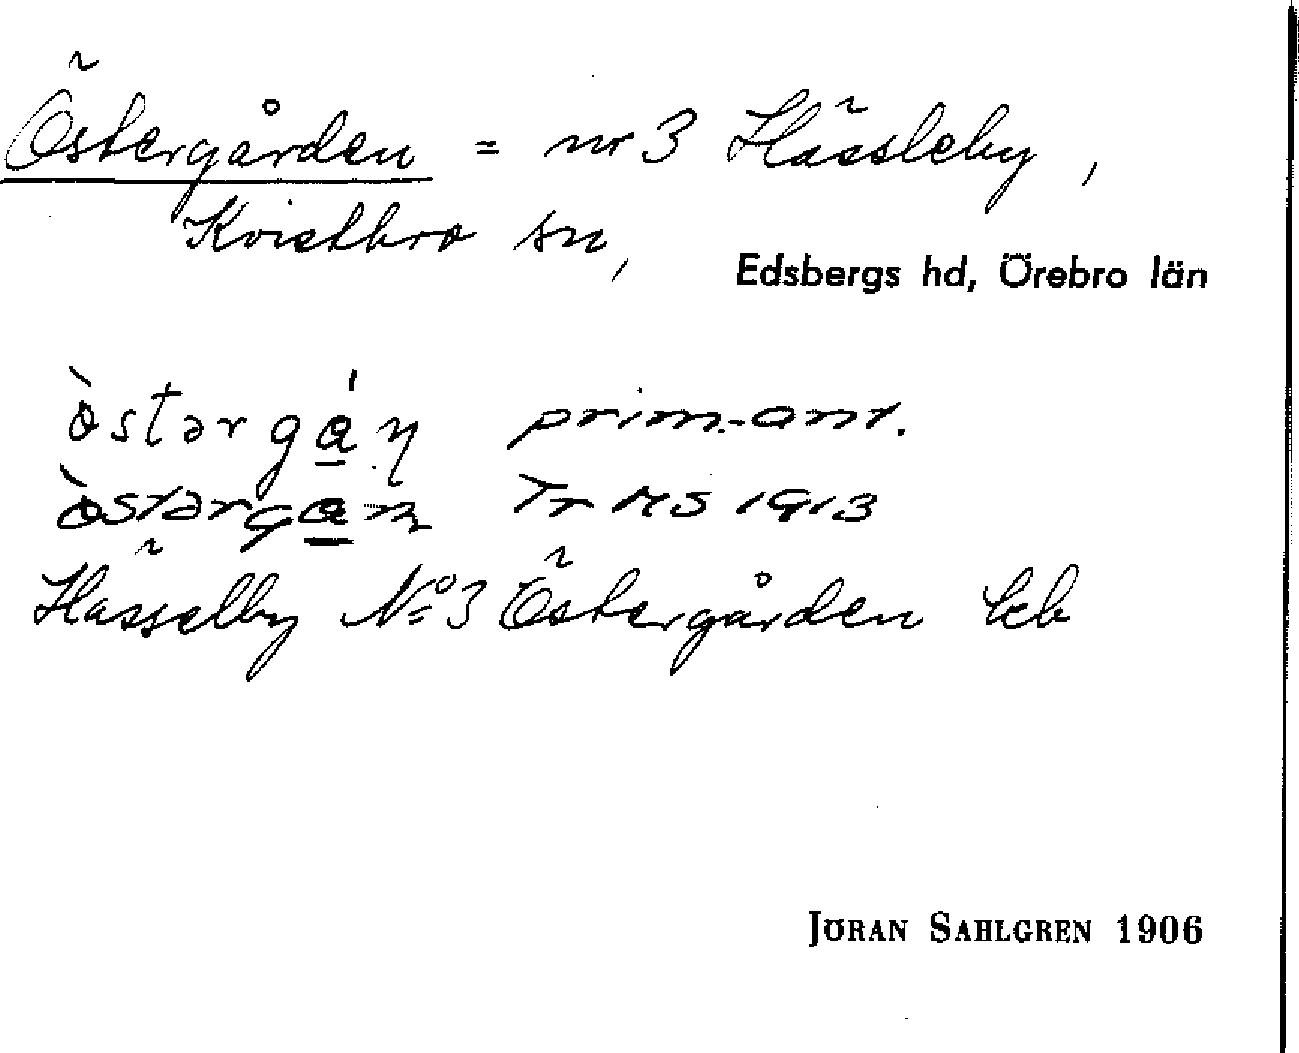 Östergården = nr 3 Hässleby,
Kvistbro sn,
Edsbergs hd, Örebro län
òstərgá̱ŋ prim.-ant.
òstərga̱n Tr MS 1913
Hässelby No 3 Östergården kb
JÖRAN SAHLGREN 1906